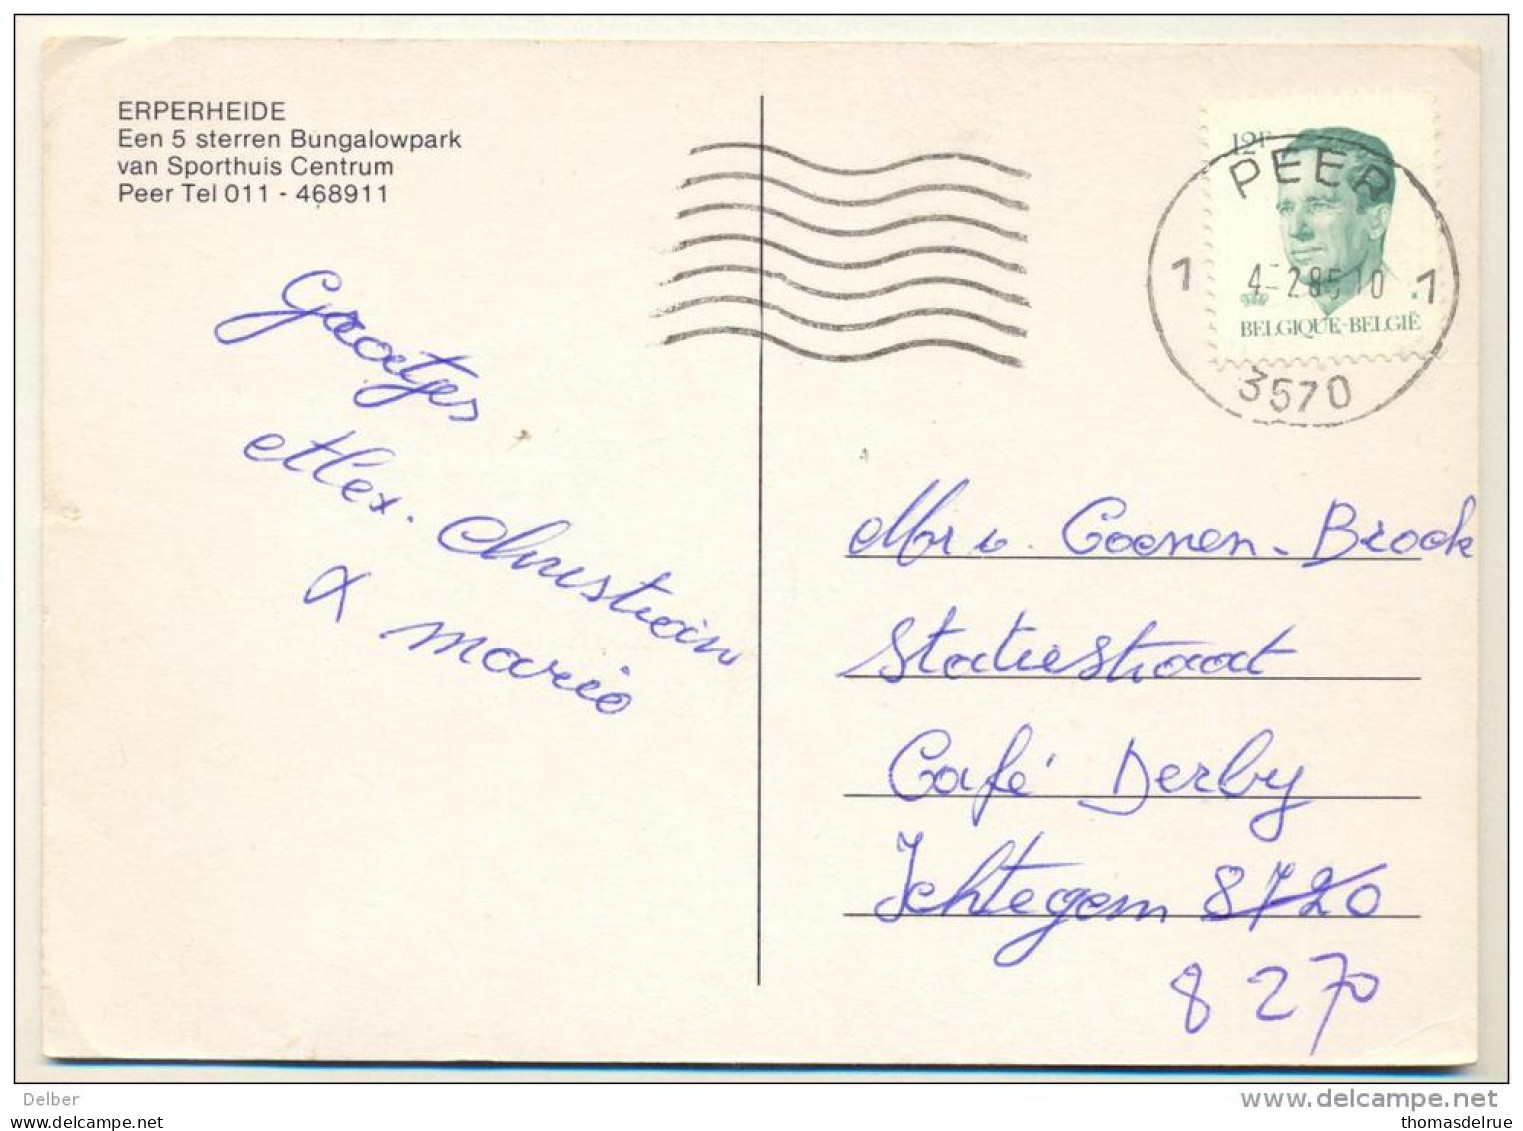 ERPERHEIDE
Een 5 sterren Bungalowpark
van Sporthuis Centrum
Peer Tel 011 - 468911
Groetjes
Alex. Christian
& Mario
12F
PEER
1 4-285 10 1
BELGIQUE-BELGIË
3570
Mr v. Coenen-Broek
Statiestraat
Café Derby
Ichtegem 8720
8270
Delber
www.delcampe.net
thomasdelrue.my.delcampe.com
thomasdelrue